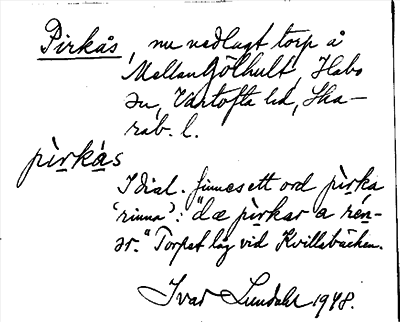 Pirkås, nu nedlagt torp å
Mellan Gölhult, Habo
sn, Vartofta hd, Ska-
rab. l.
pìrkás
I dial. finnes ett ord pìrka
'rinna': "dæ pìrkar a rén-
ər." Torpet låg vid Kvillabäcken.
Ivar Lundahl 1948.